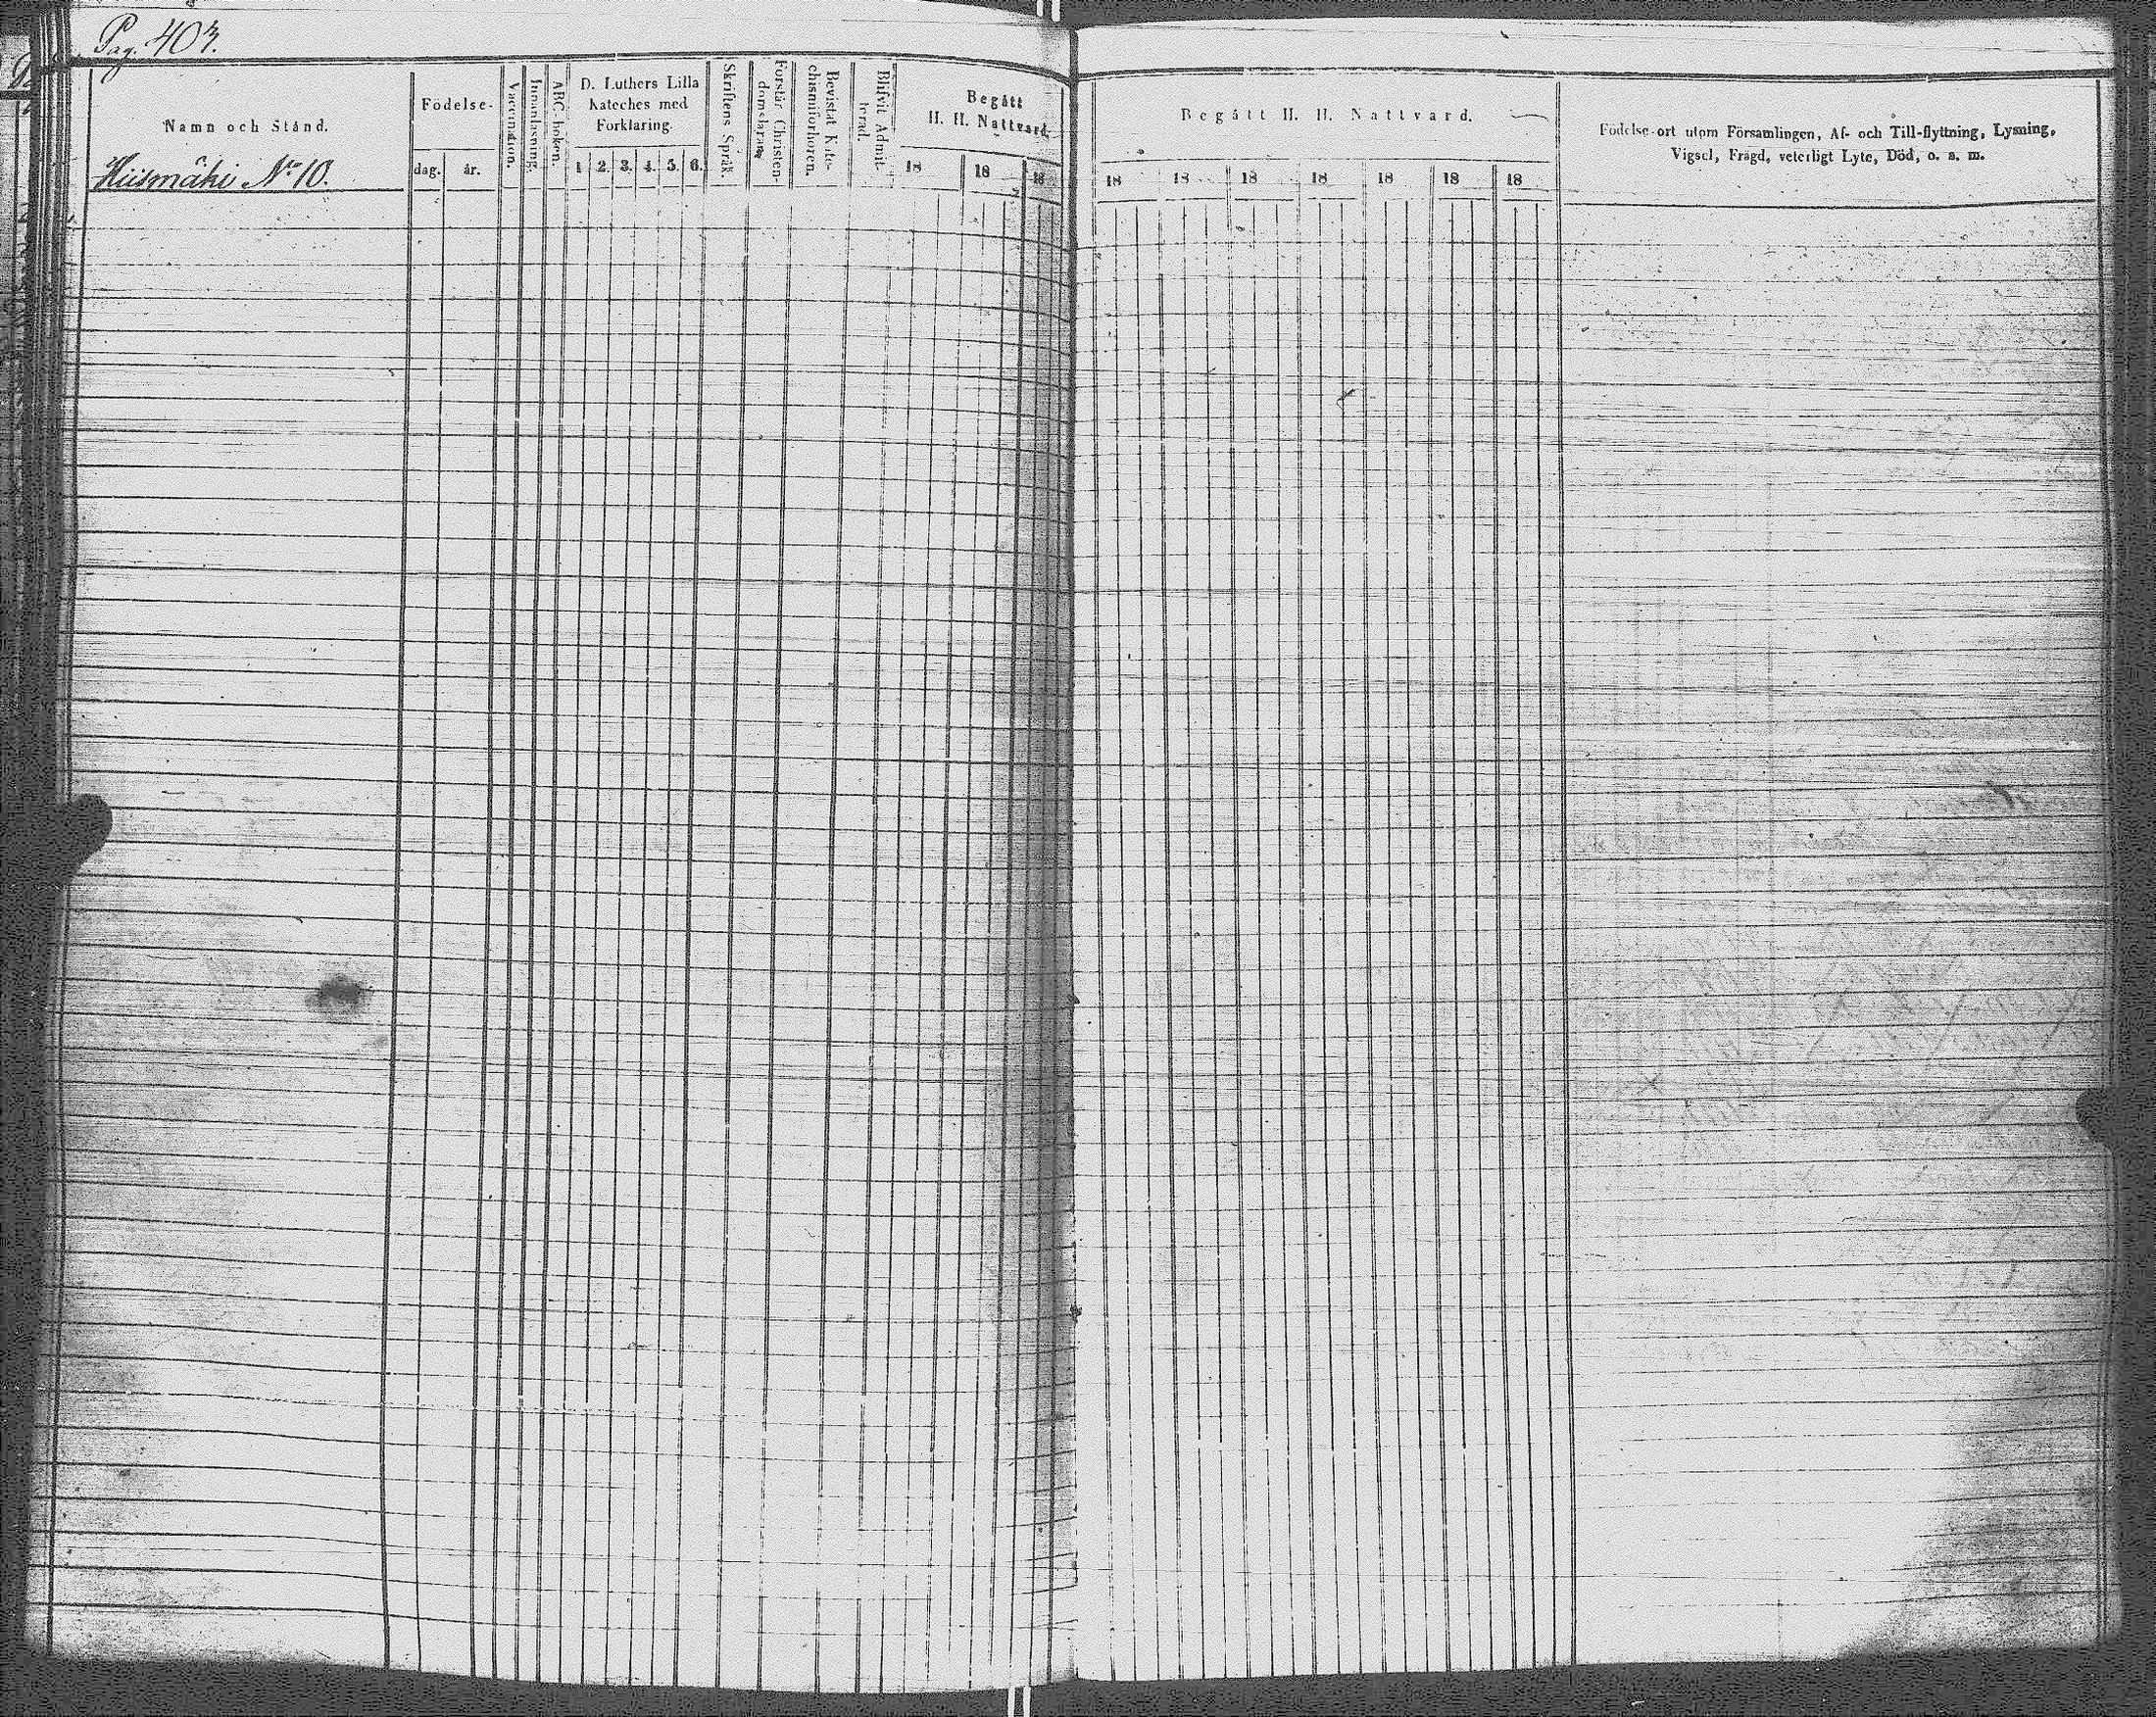 Pag. 403.
Namn och Stånd.
Hiismäki No 10.
Födelse-
dag.
år.
Vaccination.
Innanläsning.
ABC-boken.
D. Luthers Lilla
Kateches med
Förklaring.
1 2. 3. 4. 5. 6.
Skriftens Språk.
Förstår Christen-
domsläran.
Bevistat Kate-
chismiförhören.
Blifvit Admit-
terad.
Begått
H. H. Nattvard.
18 18 18
Begått H. H. Nattvard.
18 18 18 18 18 18 18
Födelse-ort utom Församlingen, Af- och Till-flyttning, Lysning,
Vigsel, Frägd, veterligt Lyte, Död, o. s. m.